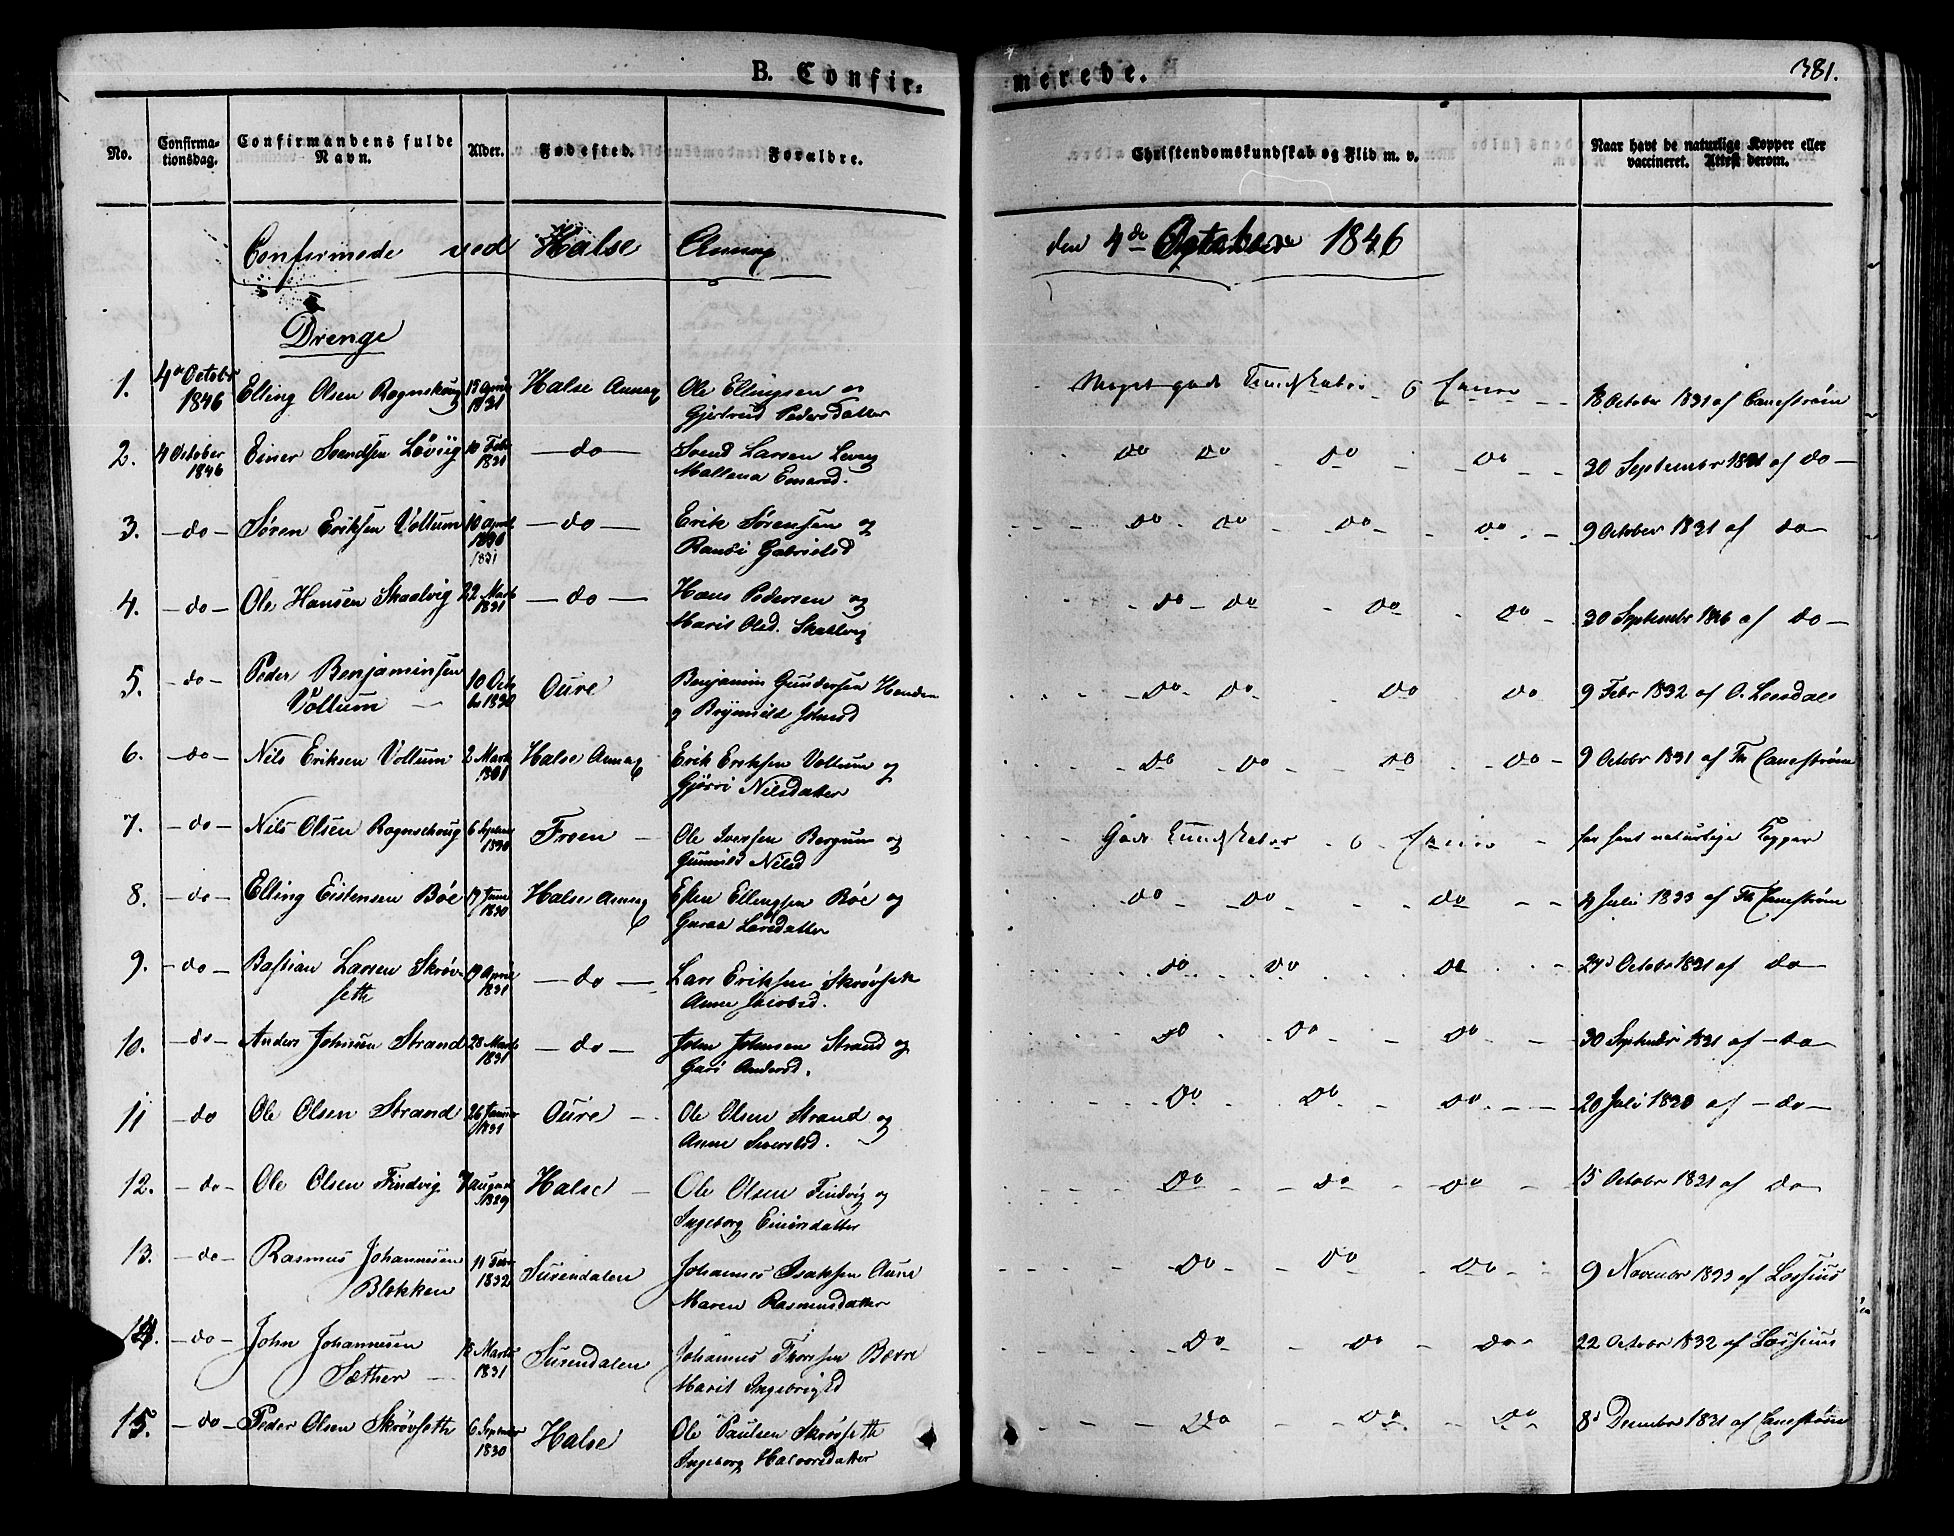 B. Confir=
merede.
381.
No.
Confirma-
tionsdag.
Confirmandens fulde
Navn.
Alder.
Fødested.
Forældre.
Christendomskundskab og Flid m. v.
Naar havt de naturlige Kopper eller
vaccineret. Attest derom.
Confirmede ved Halse Annex
den 4de October 1846
Drenge
1. 4de Octobr Elling Olsen Rognskoug 13 April Halse Annex Ole Ellingsen og Meget gode Kundskaber 18 October 1831 af Canestrøm
1846 1831 Gjertrud Pedersdatter
2. 4 October Einer Svendsen Løviig 10 Febr —do— Svend Larsen do do do do 30 Septembr 1831 af do—
1846 1831 Mallena Einarsd.
3. —do— Søren Eriksen Vollum 10 April —do— Erik Sørensen og do do do do 9 October 1831 af do—
1831 Randi Gabrielsd
4. —do— Ole Hansen Skaalvig 22 Marts —do— Hans Pedersen og do do do do 30 Septembr af do—
1831 Marit Olsd. Skaalvig
5. —do— Peder Benjaminsen 10 Octo Oure Benjamin Gundersen Henden do do do do 9 Febr 1832 af
Vollum — br 1830 og Brynnild Johnsd
6. —do— Nils Eriksen Vollum 2 Marts Halse Annex Erik Eriksen Vollum og do do do do 9 Octobr 1831 af Th Canestrøm
1831 Gjørri Nilsdatter
7. —do— Nils Olsen Rognschoug 6 Septem Froen — Ole Iversen Bergum og Gode Kundskaber har havt naturlige Kopper
1830 Gunnild Nilsd
8. —do— Elling Eistensen Bøe 17 Juni Halse Annex Esten Ellingsen Bøe og do do do 4 Juli 1833 af Th Canestrøm
1830 Guraa Larsdatter
9. —do— Bastian Larsen Skrøv- 19 April —do— Lars Eriksen Skrøvseth do do do 24d Octobr 1831 af do—
seth 1831 Anne Jacobsd.
10. —do— Anders Johnsen Strand 28 Marts —do— John Johnsen Strand og do do do 30 Septembr 1831 af —do—
1831 Guri Andersd.
11 —do Ole Olsen Strand 26 Januar Oure — Ole Olsen Strand og do do do 20 Juli 1830 af —do—
1831 Anne Siversd.
12. —do— Ole Olsen Findvig 7 August Halse — Ole Olsen Findvig og do do do 15 Octobr 1831 af do—
1829 Ingeborg Einersdatter
13. —do— Rasmus Johannesen 11 Febr Surendalen Johannes Isaksen Aune do do do 9 Novembr 1833 af Lossius
Blekken 1832 Maren Rasmusdatter
14. —do— John Johannesen 18 Marts Surendalen Johannes Thoresen Bævre do do do 22 Octobr 1832 af Lossius
Sæther — 1831 Marit Ingebrigtsd
15. —do— Peder Olsen Skrøvseth 6 Septembr Halse Ole Paulsen Skrøvseth do do do 8d Decembr 1831 af Canestrøm
1830 Ingeborg Halvorsdatter